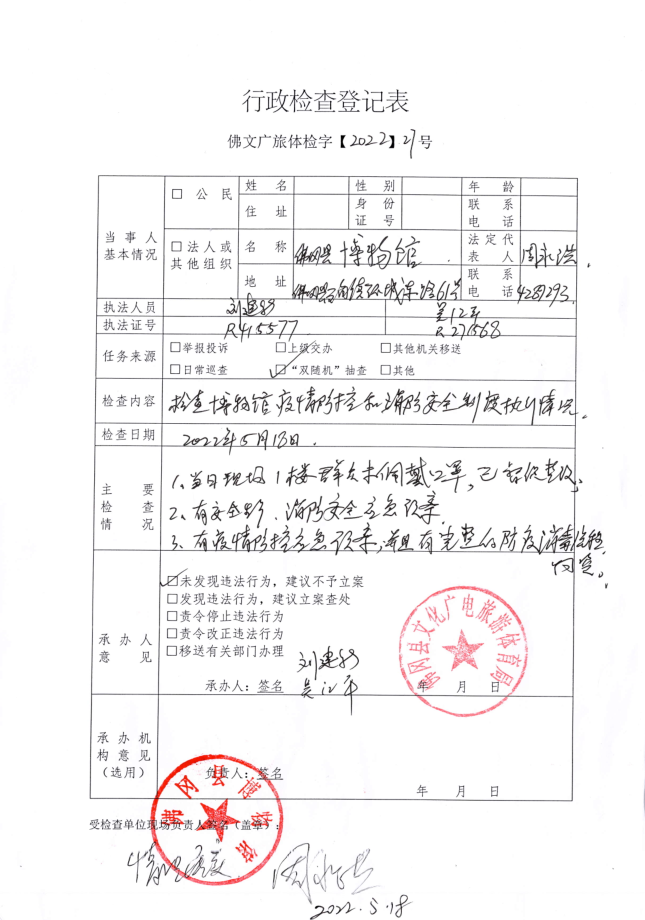 行政检查登记表
佛文广旅体检字【2022】27号
当事人基本情况
□公民 姓名 性别 年龄
住址 身份证号 联系电话
□法人或其他组织 名称 佛冈县博物馆 法定代表人 周永洪
地址 佛冈县 环城东路61号 联系电话 4287293
执法人员 刘建 吴江平
执法证号 R415577 R271568
任务来源 □举报投诉 □上级交办 □其他机关移送
□日常巡查 ☑“双随机”抽查 □其他
检查内容 检查博物馆疫情防控和消防安全制度执行情况。
检查日期 2022年5月18日.
主要检查情况 1、当日现场1楼群众未佩戴口罩,已 整改;
2、有安全 、消防安全应急预案
3、有疫情防控应急预案,并且有完整的防疫消毒
承办人意见
☑未发现违法行为，建议不予立案
□发现违法行为，建议立案查处
□责令停止违法行为
□责令改正违法行为
□移送有关部门办理
刘建
承办人：签名 吴江平 年 月 日
佛冈县文化广电旅游体育局
承办机构意见（选用）
负责人：签名
年 月 日
佛冈县博物馆
受检查单位现场负责人签名（盖章）：
情况属实
2022.5.18